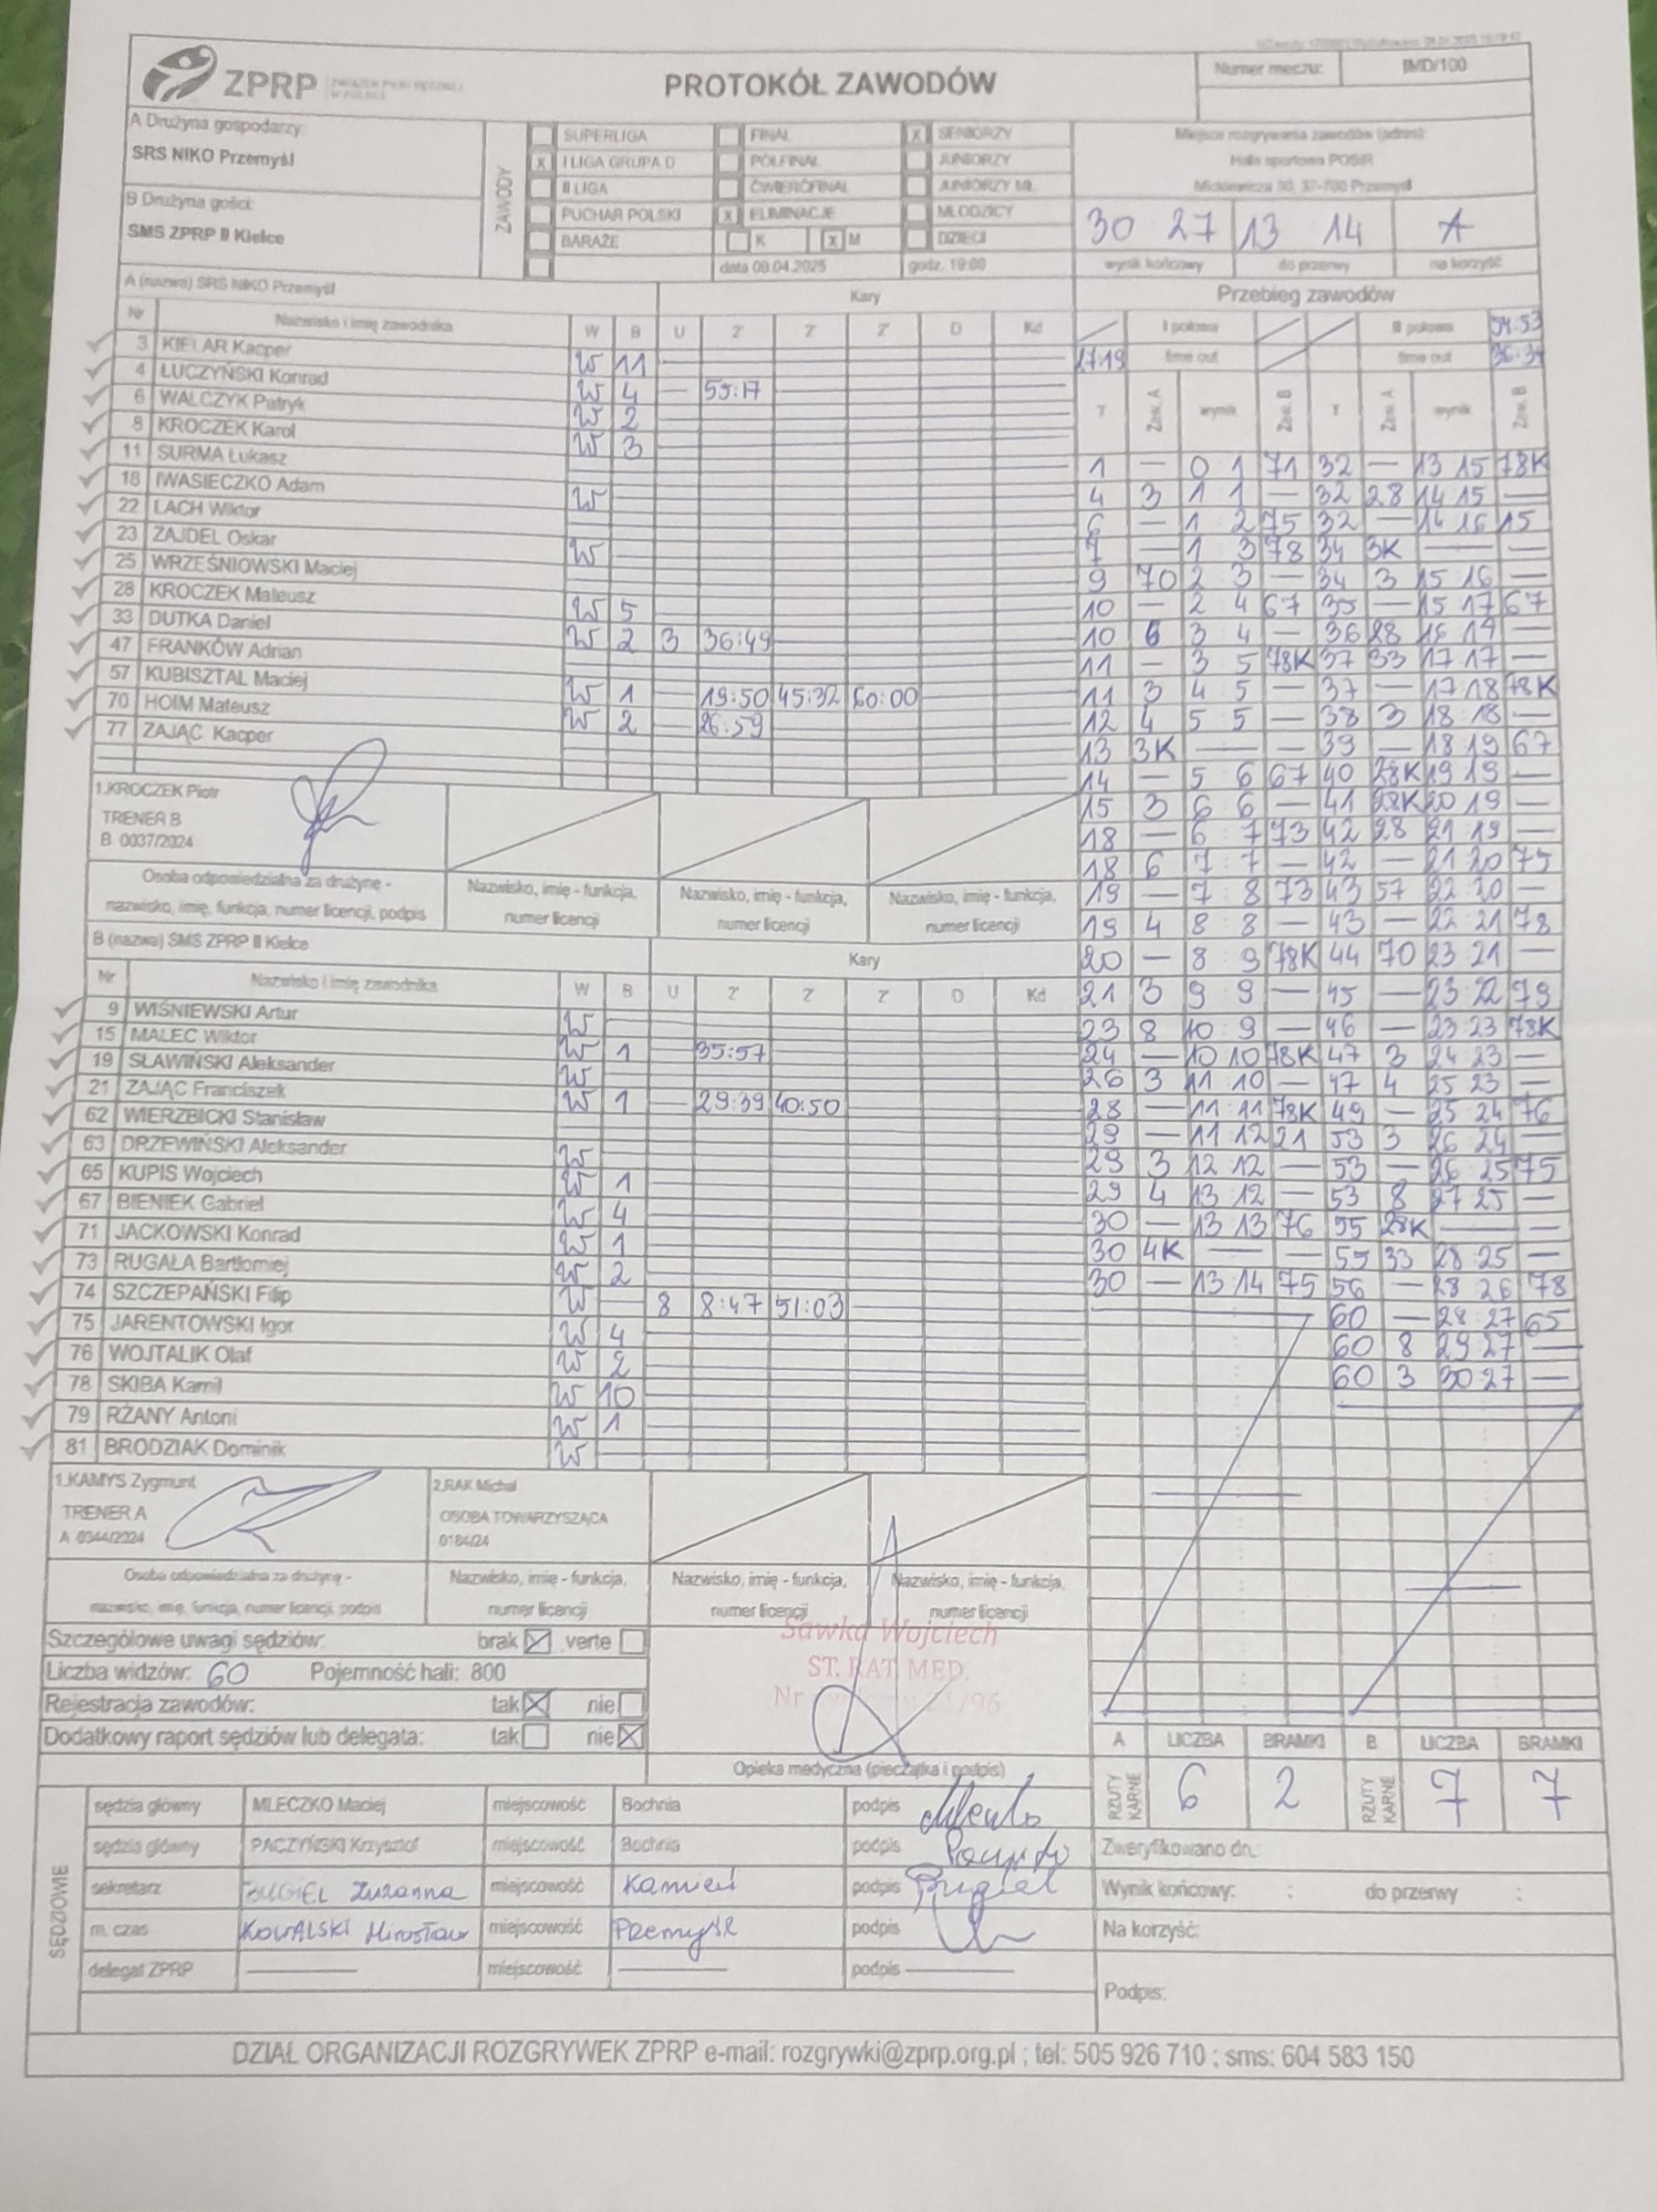 ZPRP ZWIĄZEK PIŁKI RĘCZNEJ W POLSCE
PROTOKÓŁ ZAWODÓW
Numer meczu: IMD/100
A Drużyna gospodarzy:
SRS NIKO Przemyśl
B Drużyna gości:
SMS ZPRP II Kielce
ZAWODY
SUPERLIGA FINAŁ X SENIORZY
X I LIGA GRUPA D PÓŁFINAŁ JUNIORZY
II LIGA ĆWIERĆFINAŁ JUNIORZY MŁ.
PUCHAR POLSKI X ELIMINACJE MŁODZICY
BARAŻE K X M DZIECI
data 09.04.2025 godz. 19:00
Miejsce rozgrywania zawodów (adres):
Hala sportowa POSiR
Mickiewicza 30, 37-700 Przemyśl
30 27 13 14 A
wynik końcowy do przerwy na korzyść
A (nazwa) SRS NIKO Przemyśl Kary
Nr Nazwisko i imię zawodnika W B U 2' 2' 2' D Kd
3 KIELAR Kacper W 11
4 ŁUCZYŃSKI Konrad W 4 — 55:17
6 WALCZYK Patryk W 2
8 KROCZEK Karol W 3
11 SURMA Łukasz
18 IWASIECZKO Adam W
22 LACH Wiktor
23 ZAJDEL Oskar W
25 WRZEŚNIOWSKI Maciej
28 KROCZEK Mateusz W 5
33 DUTKA Daniel W 2 3 36:49
47 FRANKÓW Adrian
57 KUBISZTAL Maciej W 1 — 19:50 45:32 60:00
70 HOIM Mateusz W 2 — 26:59
77 ZAJĄC Kacper
1.KROCZEK Piotr
TRENER B
B 0037/2024
Osoba odpowiedzialna za drużynę - nazwisko, imię, funkcja, numer licencji, podpis
Nazwisko, imię - funkcja, numer licencji
Nazwisko, imię - funkcja, numer licencji
Nazwisko, imię - funkcja, numer licencji
B (nazwa) SMS ZPRP II Kielce Kary
Nr Nazwisko i imię zawodnika W B U 2' 2' 2' D Kd
9 WIŚNIEWSKI Artur W
15 MALEC Wiktor W 1 — 35:57
19 SŁAWIŃSKI Aleksander W
21 ZAJĄC Franciszek W 1 — 29:39 40:50
62 WIERZBICKI Stanisław
63 DRZEWIŃSKI Aleksander W
65 KUPIS Wojciech W 1
67 BIENIEK Gabriel W 4
71 JACKOWSKI Konrad W 1
73 RUGAŁA Bartłomiej W 2
74 SZCZEPAŃSKI Filip W — 8 8:47 51:03
75 JARENTOWSKI Igor W 4
76 WOJTALIK Olaf W 2
78 SKIBA Kamil W 10
79 RŻANY Antoni W 1
81 BRODZIAK Dominik W
1.KAMYS Zygmunt
TRENER A
A 0344/2024
2.RAK Michał
OSOBA TOWARZYSZĄCA
0184/24
Osoba odpowiedzialna za drużynę - nazwisko, imię, funkcja, numer licencji, podpis
Nazwisko, imię - funkcja, numer licencji
Nazwisko, imię - funkcja, numer licencji
Nazwisko, imię - funkcja, numer licencji
Szczegółowe uwagi sędziów: brak X verte
Liczba widzów: 60 Pojemność hali: 800
Rejestracja zawodów: tak X nie
Dodatkowy raport sędziów lub delegata: tak nie X
Sawka Wojciech
ST. RAT MED.
Opieka medyczna (pieczątka i podpis)
Przebieg zawodów
I połowa II połowa 54:53
17:19 time out time out 36:34
T Zaw. A wynik Zaw. B T Zaw. A wynik Zaw. B
1 — 0 1 71 32 — 13 15 78K
4 3 1 1 — 32 28 14 15 —
6 — 1 2 75 32 — 14 16 15
7 — 1 3 78 34 3K — —
9 70 2 3 — 34 3 15 16 —
10 — 2 4 67 35 — 15 17 67
10 6 3 4 — 36 28 16 17 —
11 — 3 5 78K 37 33 17 17 —
11 3 4 5 — 37 — 17 18 78K
12 4 5 5 — 38 3 18 18 —
13 3K — — 39 — 18 19 67
14 — 5 6 67 40 28K 19 19 —
15 3 6 6 — 41 28K 20 19 —
18 — 6 7 73 42 28 21 19 —
18 6 7 7 — 42 — 21 20 75
19 — 7 8 73 43 57 22 20 —
19 4 8 8 — 43 — 22 21 78
20 — 8 9 78K 44 70 23 21 —
21 3 9 9 — 45 — 23 22 79
23 8 10 9 — 46 — 23 23 78K
24 — 10 10 78K 47 3 24 23 —
26 3 11 10 — 47 4 25 23 —
28 — 11 11 78K 49 — 25 24 76
29 — 11 12 21 53 3 26 24 —
29 3 12 12 — 53 — 26 25 75
29 4 13 12 — 53 8 27 25 —
30 — 13 13 76 55 28K — —
30 4K — — 55 33 28 25 —
30 — 13 14 75 56 — 28 26 78
60 — 28 27 65
60 8 29 27 —
60 3 30 27 —
A LICZBA BRAMKI B LICZBA BRAMKI
RZUTY KARNE 6 2 RZUTY KARNE 7 7
SĘDZIOWIE
sędzia główny MLECZKO Maciej miejscowość Bochnia podpis
sędzia główny PACZYŃSKI Krzysztof miejscowość Bochnia podpis
sekretarz BUGIEL Zuzanna miejscowość Kamień podpis
m. czas KOWALSKI Mirosław miejscowość Przemyśl podpis
delegat ZPRP — miejscowość — podpis —
Zweryfikowano dn.:
Wynik końcowy: : do przerwy :
Na korzyść:
Podpis:
DZIAŁ ORGANIZACJI ROZGRYWEK ZPRP e-mail: rozgrywki@zprp.org.pl ; tel: 505 926 710 ; sms: 604 583 150